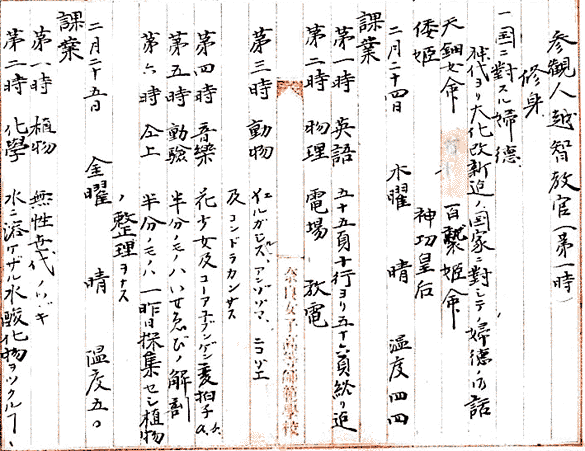 参観人越智教官(第一時)ニ
修身
一国ニ対スル婦徳
神代ヨリ大化改新迄ノ国家ニ対シテノ婦徳ノ話
天鈿女命 百襲姫命
倭姫 神功皇后
二月二十四日 木曜 晴 温度四四
課業
第一時 英語 五十五頁十行ヨリ五十六頁終リ迄
第二時 物理 電場 放電
第三時 動物
及コンドラカンサス
第四時 音楽 花少女及 変拍子
第五時 動験 半分ノモノハいせゑびノ解剖
第六時 仝上 半分ノモノハ一昨日採集セシ植物
ノ整理ヲナス
二月二十五日 金曜 晴 温度五〇
課業
第一時 植物 無性世代ノツヾキ
第二時 化学 水ニ溶ケザル水酸化物ヲツクル
奈良女子高等師範学校